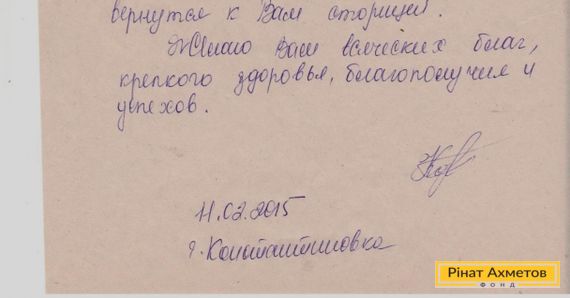 вернутся к Вам сторицей.
Желаю Вам всяческих благ,
крепкого здоровья, благополучия и
успехов.
11.02.2015
г. Константиновка
Рінат Ахметов
ФОНД